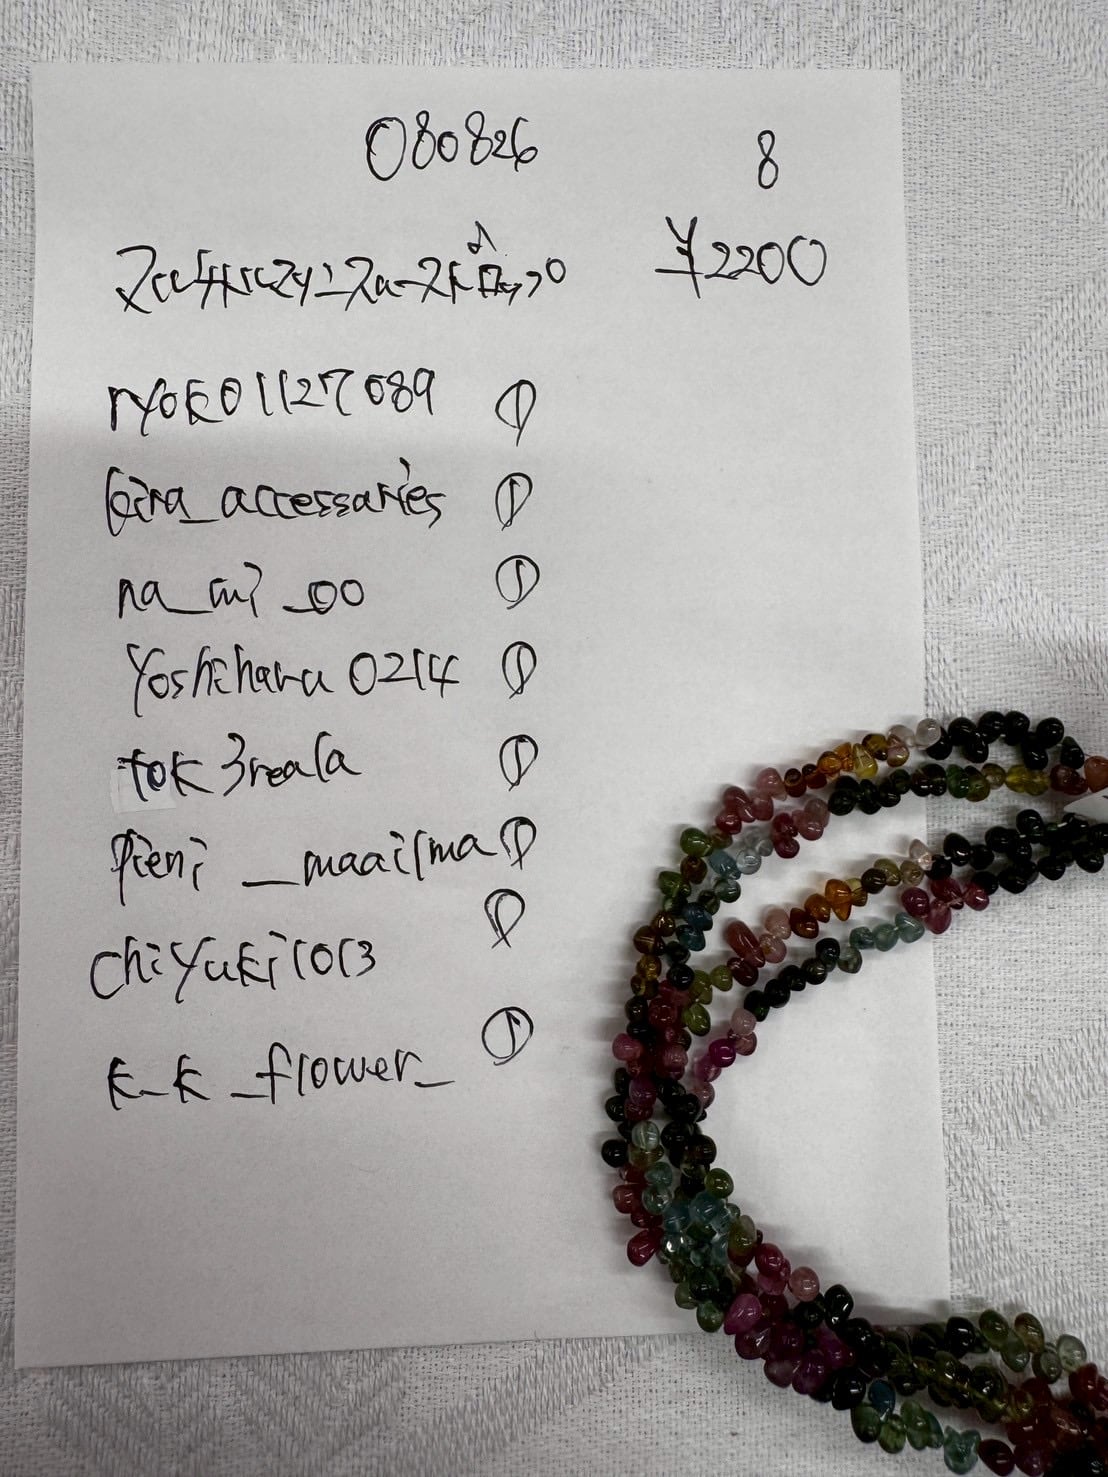 080826 8
¥2200
ryoko1127089 ①
kira_accessaries ①
na_mi_00 ①
yoshiharu0214 ①
tok3reala ①
pieni_maailma ①
chiyuki1013 ①
k_k_flower_ ①